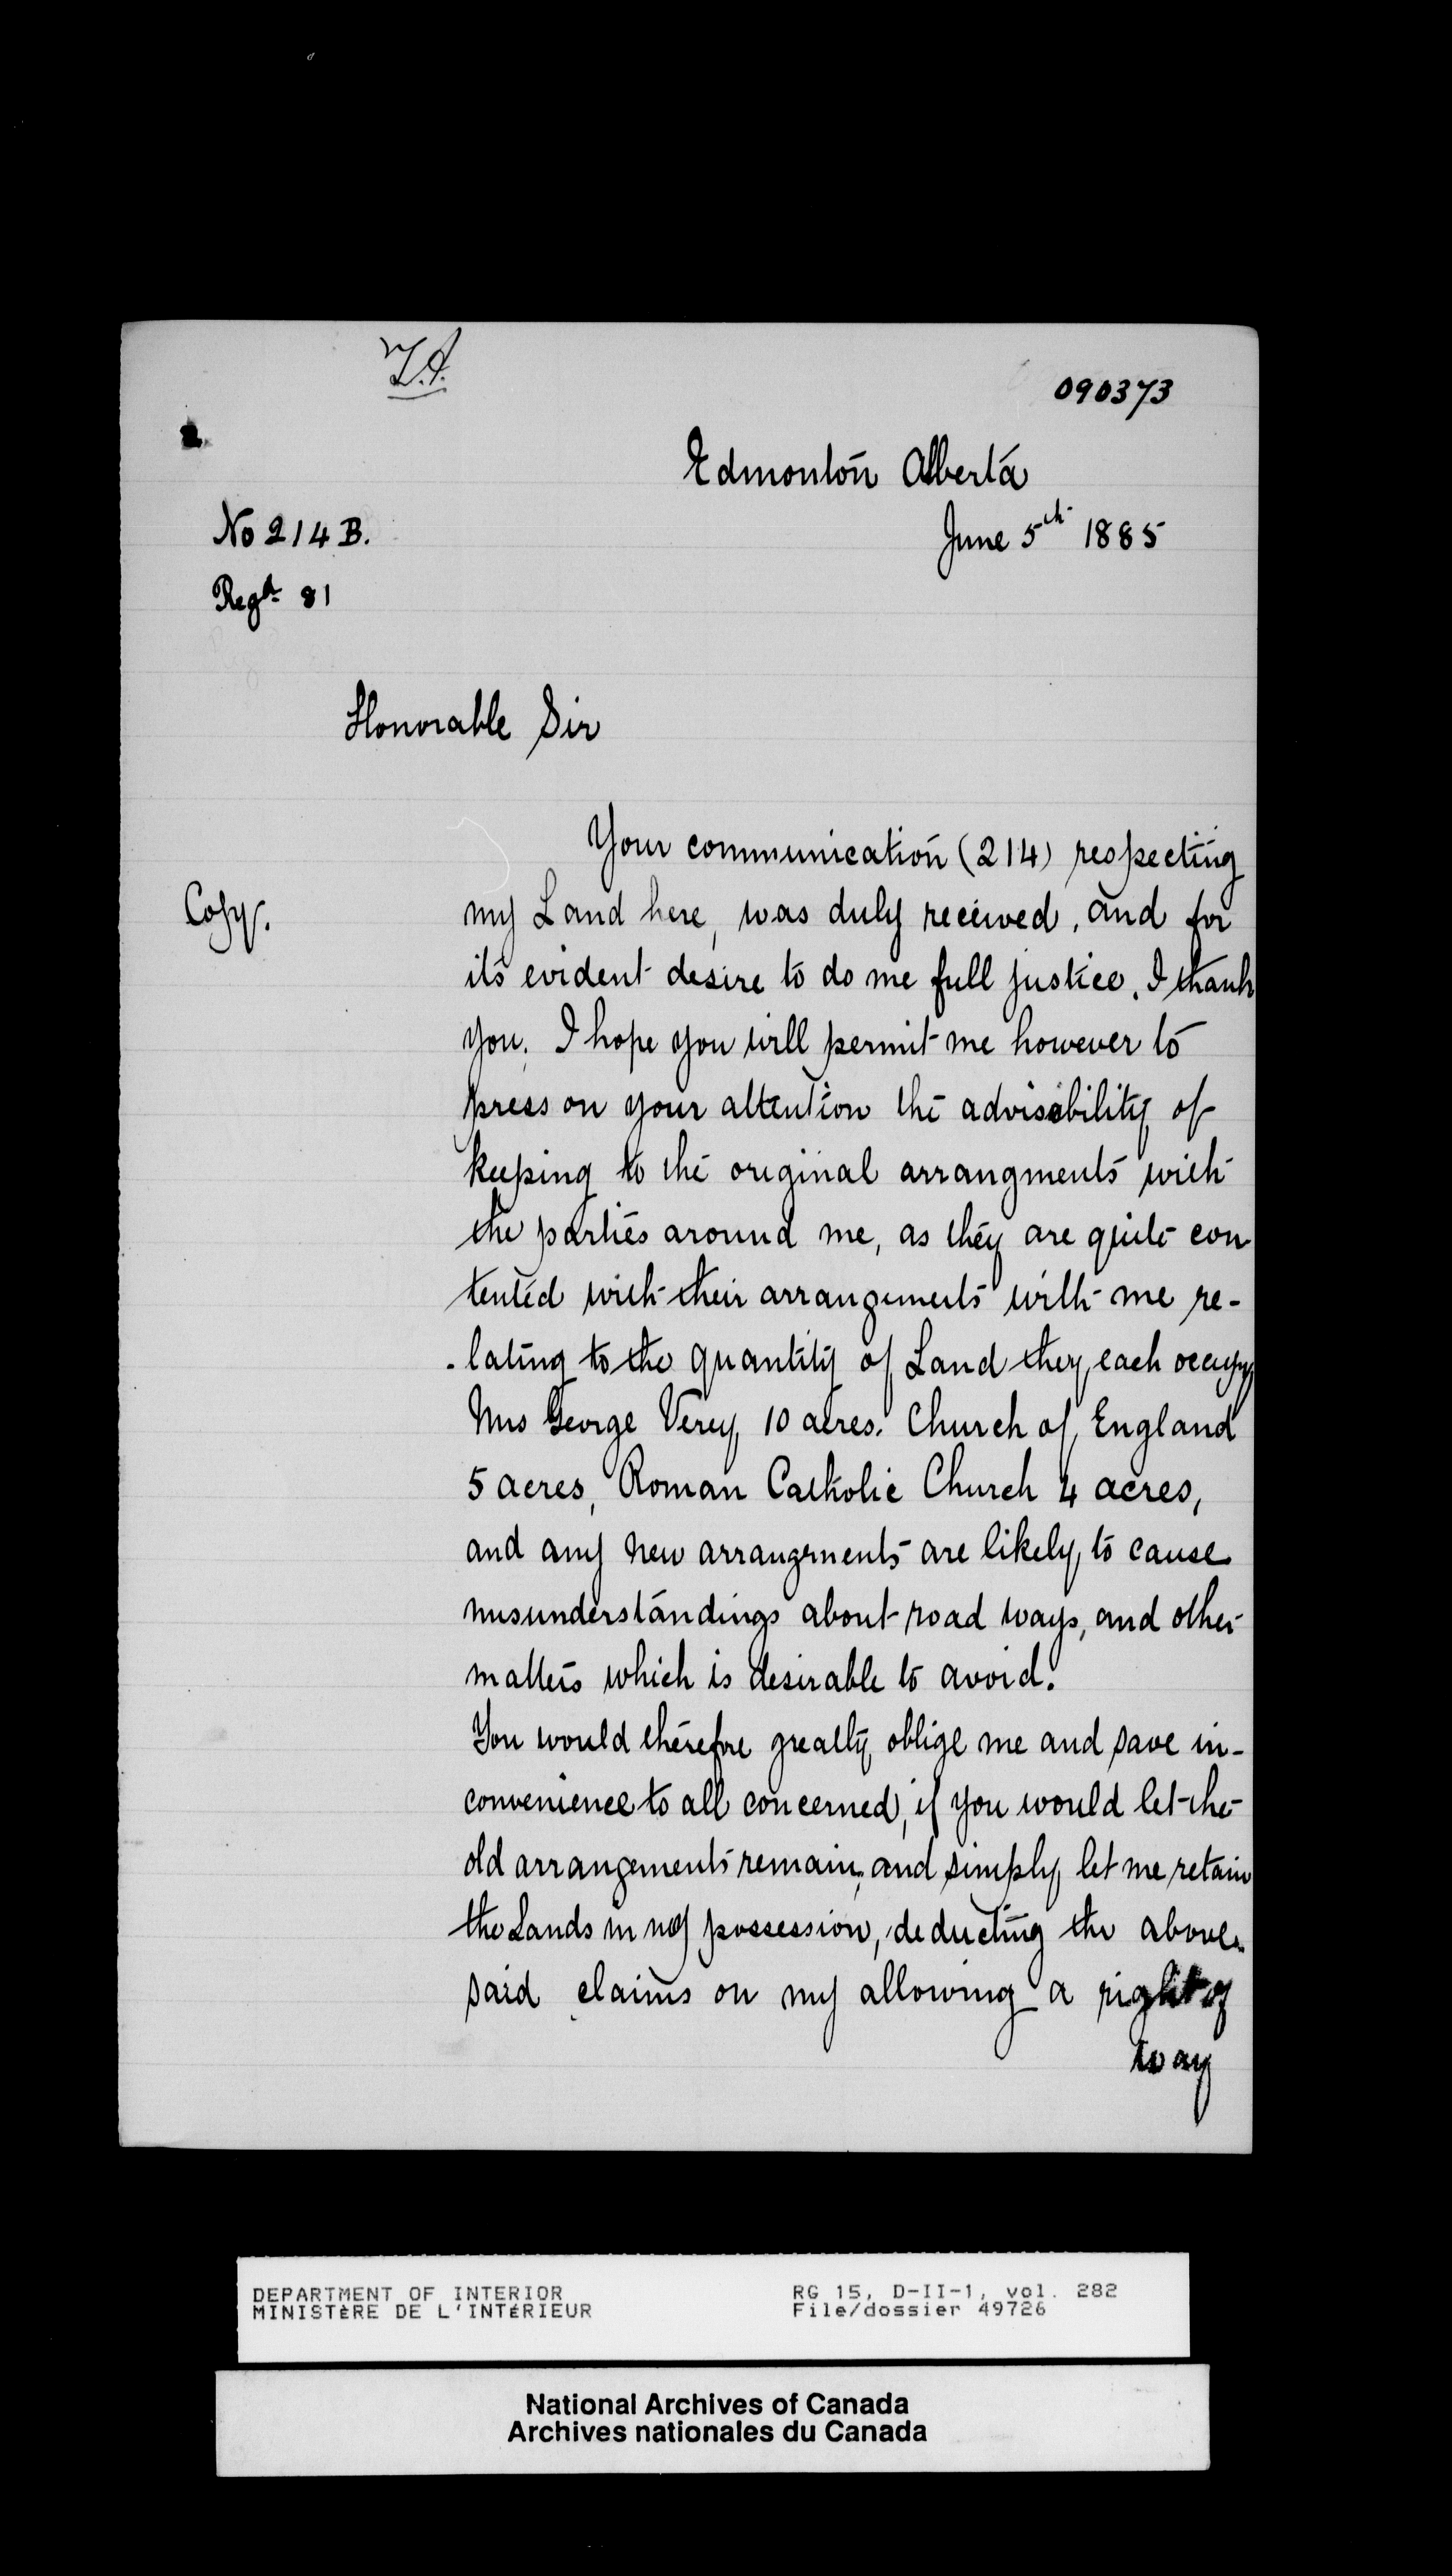 090373
Edmonton Alberta
No 214 B.
June 5th 1885
Reg. 81
Honorable Sir
Your communication (214) respecting
Copy.
my Land here, was duly received, and for
its evident desire to do me full justice, I thank
you. I hope you will permit me however to
press on your attention the advisability of
keeping to the original arrangments with
the parties around me, as they are quite con
tented with their arrangements with me re-
-lating to the quantity of Land they each occupy
Mrs George Verey 10 acres. Church of England
5 acres, Roman Catholic Church 4 acres,
and any new arrangements are likely to cause
misunderstandings about road ways, and other
matters which is desirable to avoid.
You would therefore greatly oblige me and save in-
convenience to all concerned, if you would let the
old arrangements remain, and simply let me retain
the Lands in my possession, deducting the above
said claims on my allowing a right of
way
DEPARTMENT OF INTERIOR
MINISTÈRE DE L'INTÉRIEUR
RG 15, D-II-1, vol. 282
File/dossier 49726
National Archives of Canada
Archives nationales du Canada